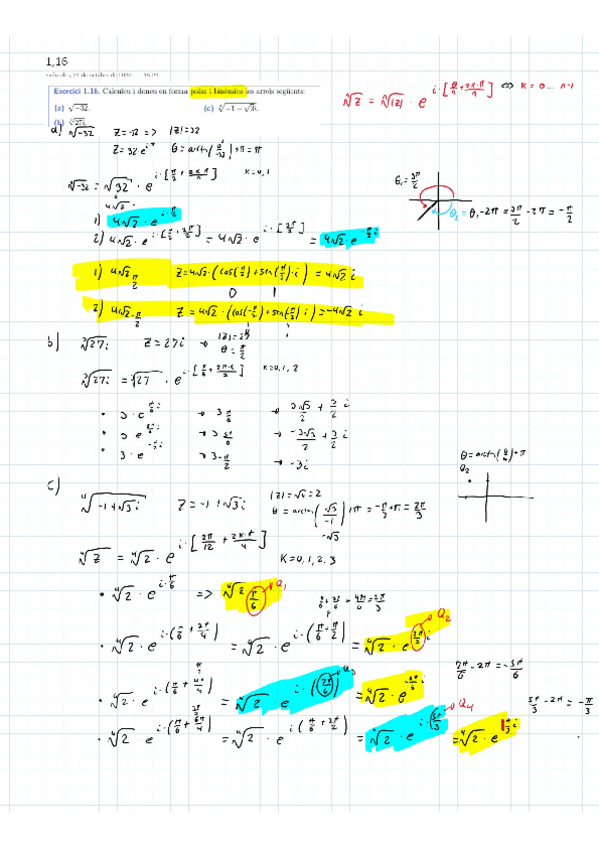 1,16
Exercici 1.16. Calculeu i doneu en forma polar i binòmica les arrels següents:
(a) √-32. (c) ∜-1 - √3i.
(b) ∛27i.
ⁿ√z = ⁿ√|z| · e^(i·[θ/n + 2k·π/n]) ⇔ k = 0 ... n-1
a) √-32 z = -32 => |z| = 32
z = 32·e^(iπ) θ = arctg(0/-32) + π = π
√-32 = √32 · e^(i·[π/2 + 2kπ/2]) k=0,1
4√2
1) 4√2·e^(i·π/2)
θ₁ = 3π/2
θ₂ = θ₁ - 2π = 3π/2 - 2π = -π/2
2) 4√2·e^(i·[π/2 + 2π/2]) = 4√2·e^(i·[3π/2]) = 4√2·e^(-π/2 i)
1) 4√2 π/2 z = 4√2·(cos(π/2) + sen(π/2)·i) = 4√2 i
0 1
2) 4√2 -π/2 z = 4√2·(cos(-π/2) + sen(π/2)·i) = -4√2 i
b) ∛27i z = 27i → |z| = 27
θ = π/2
∛27i = ∛27 · e^(i·[π/6 + 2πk/3]) k=0,1,2
• 3·e^(π/6 i) → 3 π/6 → 3√3/2 + 3/2 i
• 3 e^(5π/6 i) → 3 5π/6 → -3√3/2 + 3/2 i
• 3·e^(-π/2 i) → 3 -π/2 → -3i
θ = arctg(b/a) + π
Q2
c)
∜-1+√3i z = -1 + √3i |z| = √4 = 2
θ = arctg(√3/-1) + π = -π/3 + π = 2π/3
-√3
∜z = ∜2 · e^(i·[2π/12 + 2kπ/4]) k=0,1,2,3
• ∜2 · e^(i·π/6) => ∜2 π/6 Q1
π/6 + 2π/4 = 4π/6 = 2π/3
• ∜2 · e^(i·(π/6 + 2π/4)) = ∜2 · e^(i·(π/6 + π/2)) = ∜2 · e^(2π/3 i) Q2
7π/6 - 2π = -5π/6
• ∜2 · e^(i·(π/6 + 4π/4)) = ∜2 · e^(i·(7π/6)) Q3 = ∜2·e^(-5π/6 i)
5π/3 - 2π = -π/3
• ∜2 · e^(i·(π/6 + 6π/4)) = ∜2 · e^(i·(π/6 + 3π/2)) = ∜2 · e^(i·(5π/3)) Q4 = ∜2·e^(-π/3 i)